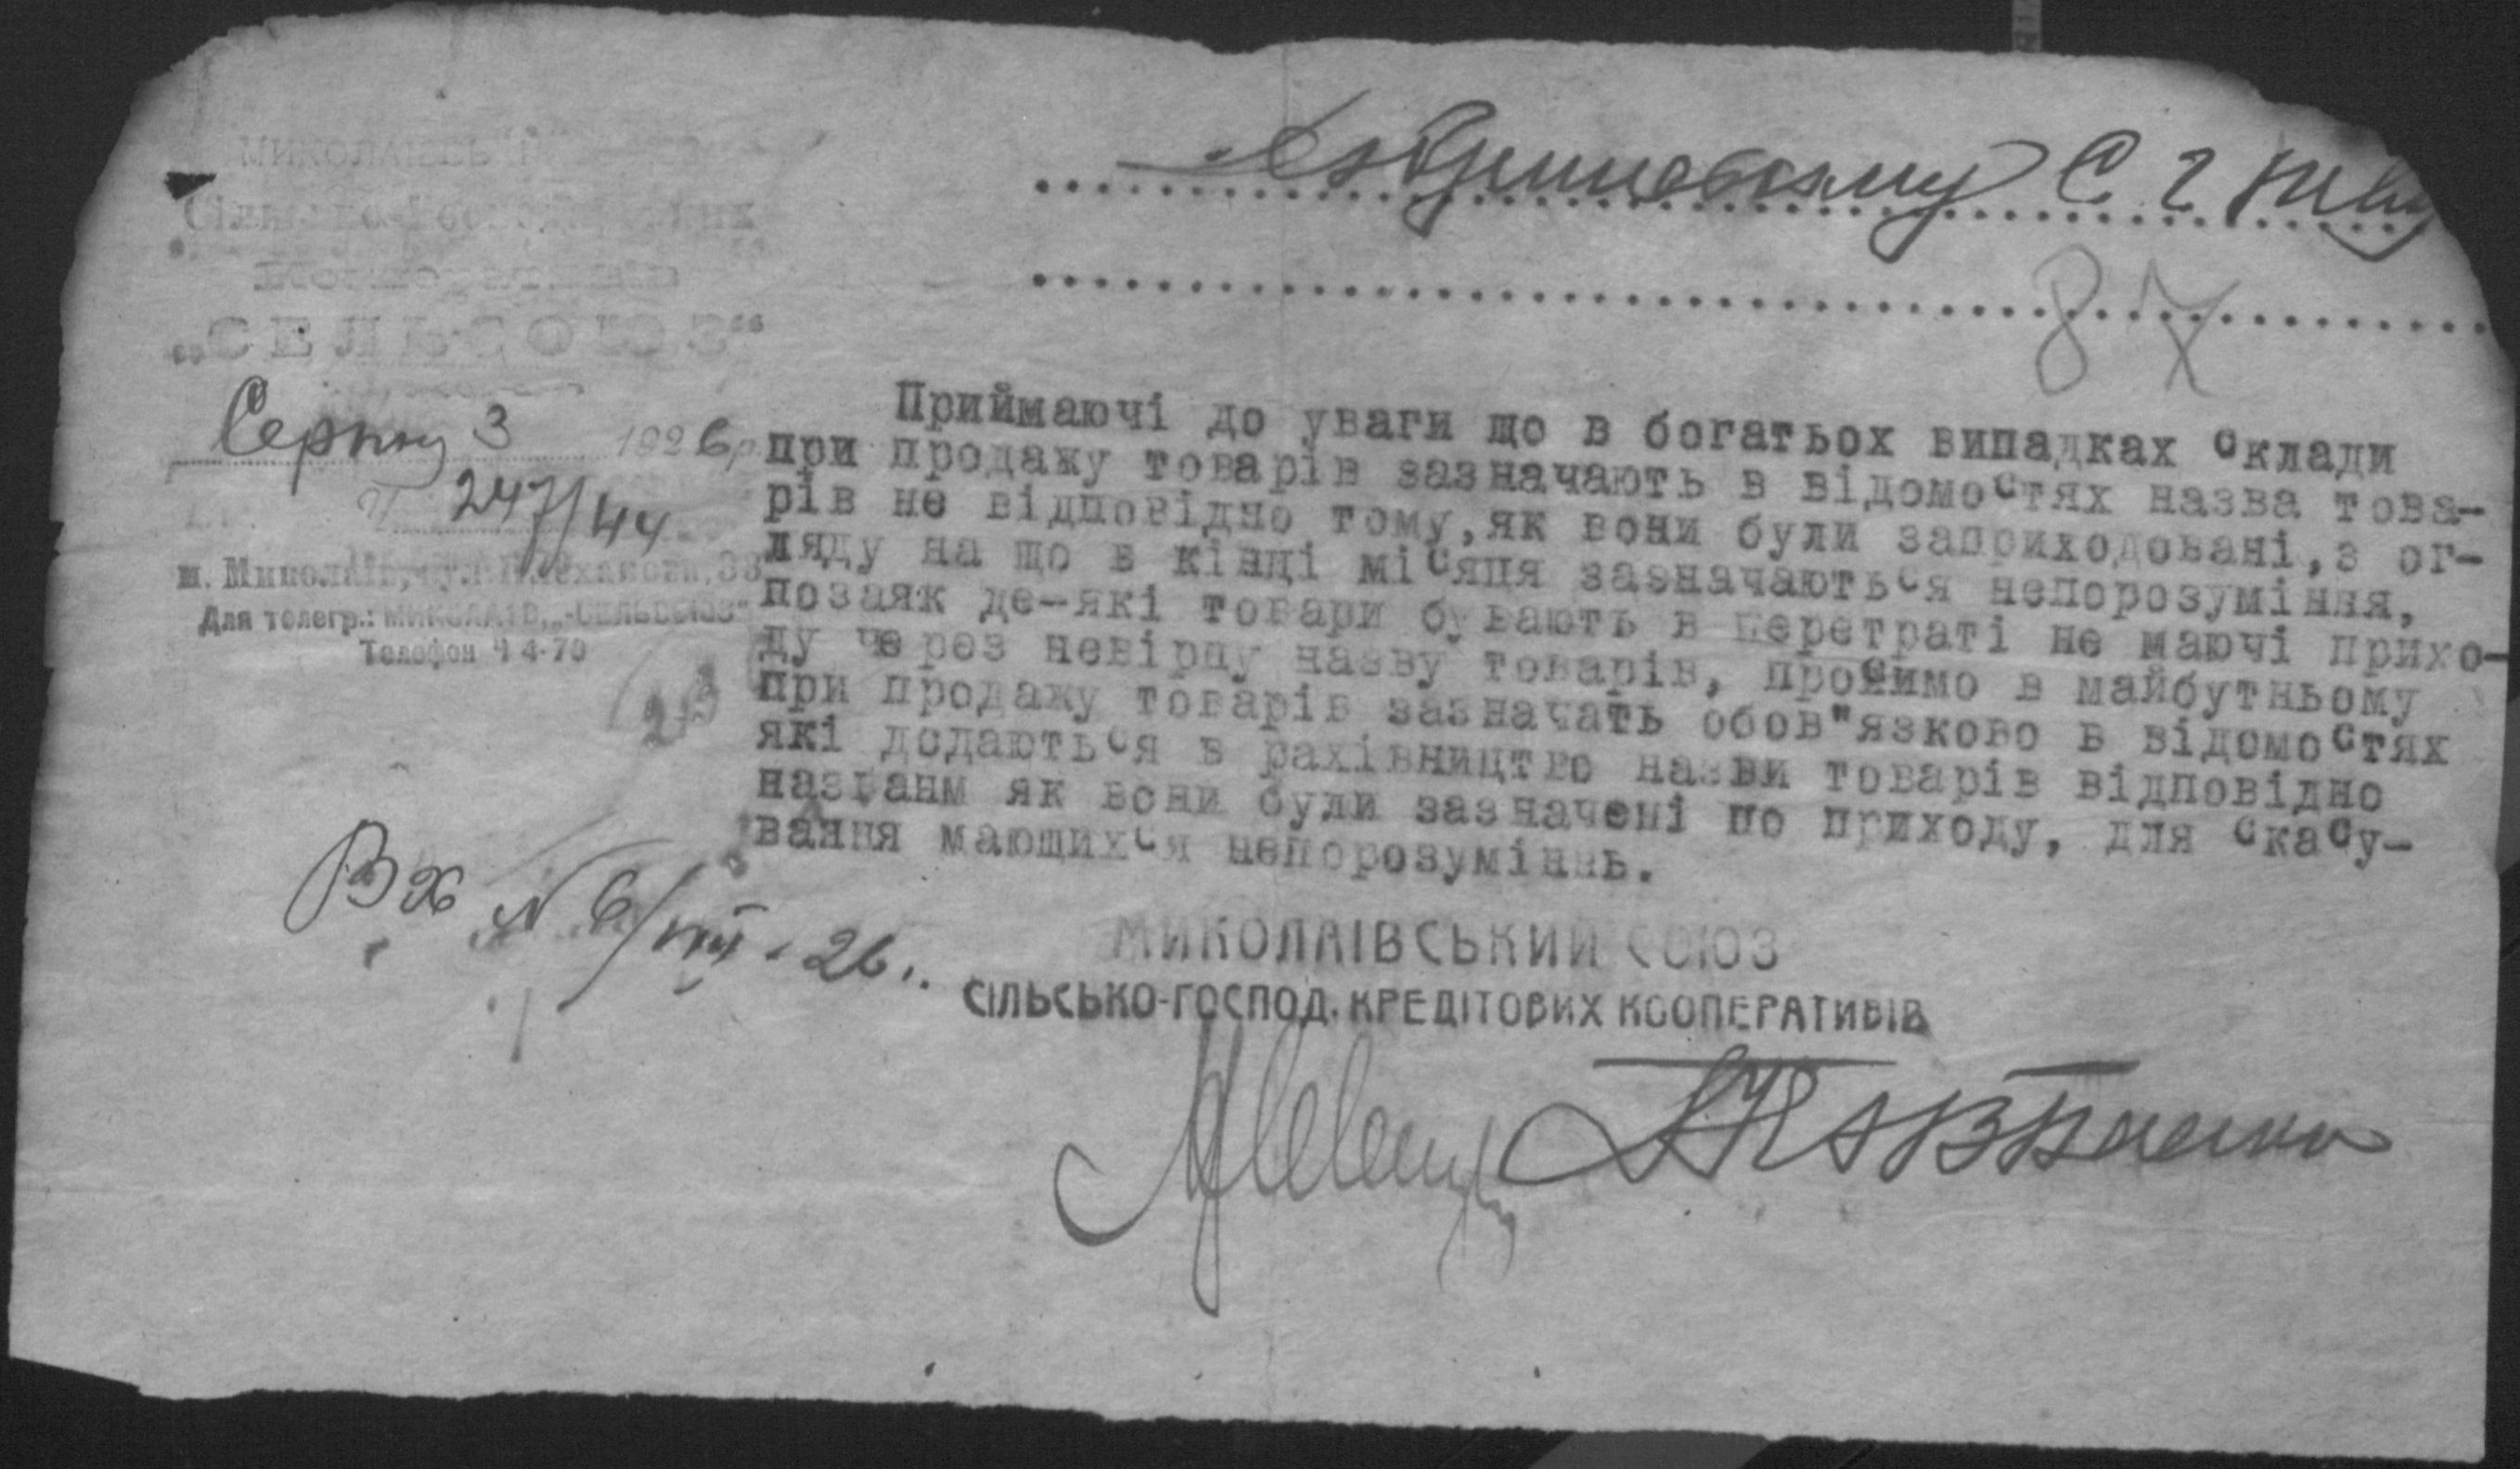 Сільсько-Госп
Кооперативів
„СЕЛЬСОЮЗ“
Серпня 3 1926 р.
247/44
м. Миколаїв, вул. Плеханова, 38
Для телегр.: МИКОЛАЇВ, „-СЕЛЬСОЮЗ“
Телефон Ч 4-70
С г
87
Приймаючі до уваги що в богатьох випадках склади
при продажу товарів зазначають в відомостях назва това-
рів не відповідно тому,як вони були заприходовані,з ог-
ляду на що в кінці місяця зазначаються непорозуміння,
позаяк де-які товари бувають в перетраті не маючі прихо-
ду через невірну назву товарів, просимо в майбутньому
при продажу товарів зазначать обов"язково в відомостях
які додаються в рахівництво назви товарів відповідно
названм як вони були зазначені по приходу, для скасу-
вання мающихся непорозуміннь.
Вх № 6/VIII - 26..
МИКОЛАЇВСЬКИЙ СОЮЗ
СІЛЬСЬКО-ГОСПОД. КРЕДІТОВИХ КООПЕРАТИВІВ